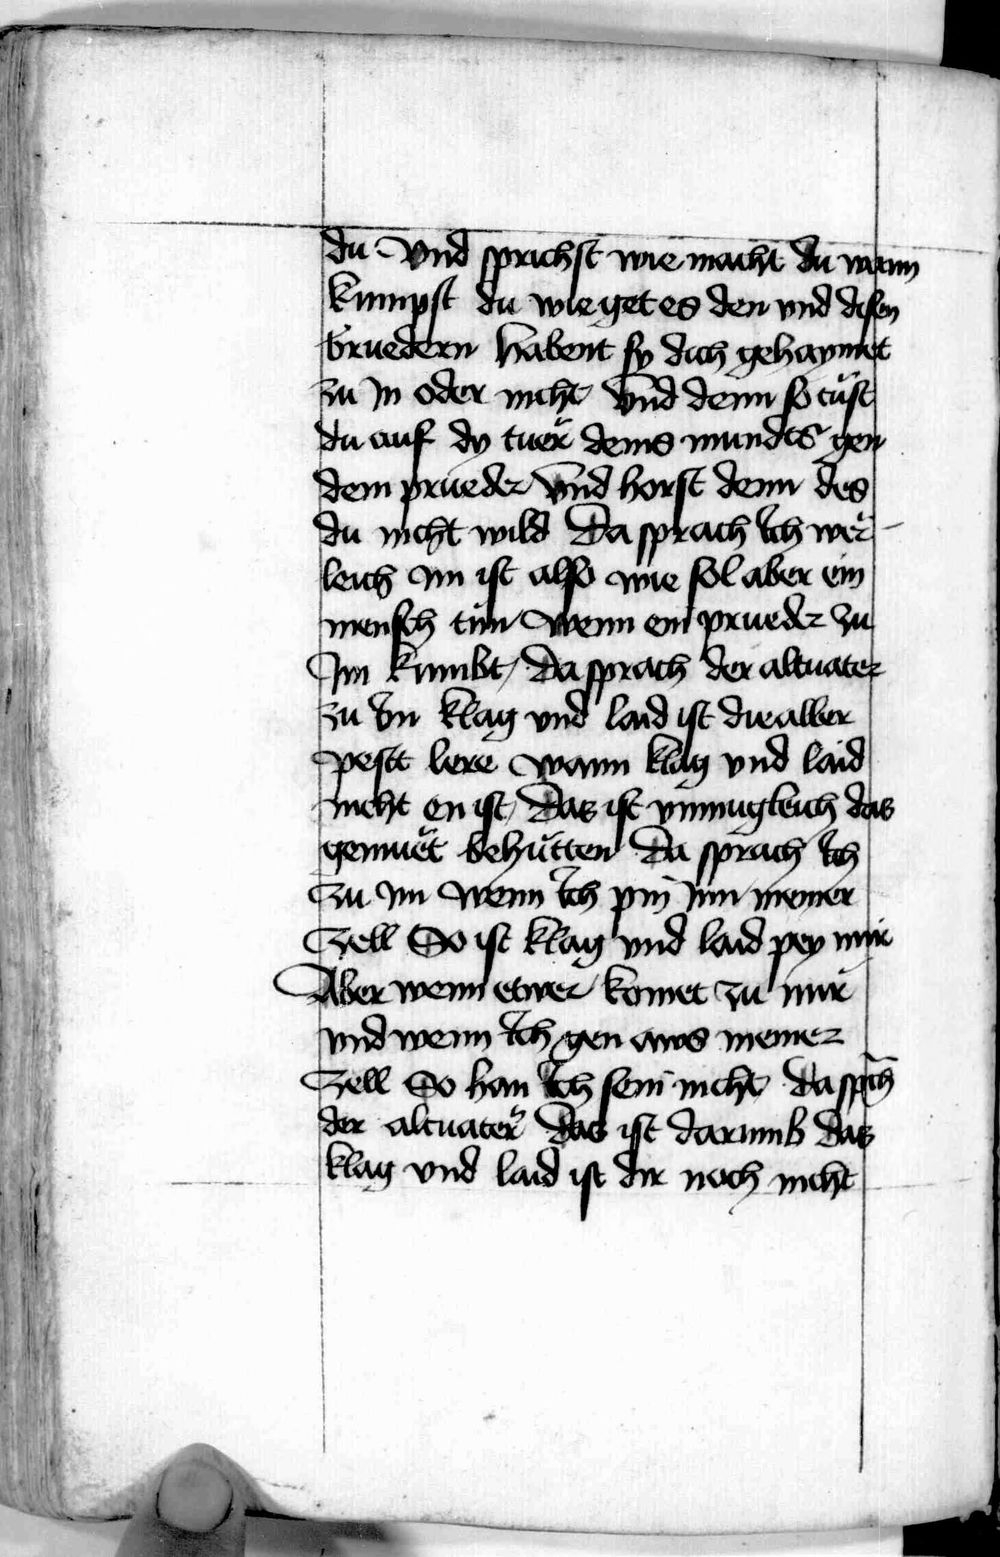 du Vnd sprichst wie macht du wann
kumpst du wie get es den vnd disen
bruedern habent sy dich gehaymet
zu in oder nicht Vnd denn so tuͤst
du auf dy tuer deins mundes gen
dem prueder Vnd horst denn des
du nicht wild Da sprach Ich wer
leich im ist also wie sol aber ein
mensch tun wenn ein prueder zu
Im kumbt / Da sprach der altuater
zu Im klag vnd laid ist die aller
pestt lere wann klag vnd laid
nicht en ist / Das ist vnmugleich das
gemuet behuͤtten Da sprach Ich
zu im wenn Ich pin Inn meiner
Zell So ist klag vnd laid pey mir
Aber wenn etwer komet zu mir
vnd wenn Ich gen aws meiner
Zell So han Ich sein nicht Da sprich
der altuater Das ist darumb das
klag vnd laid ist dir noch nicht